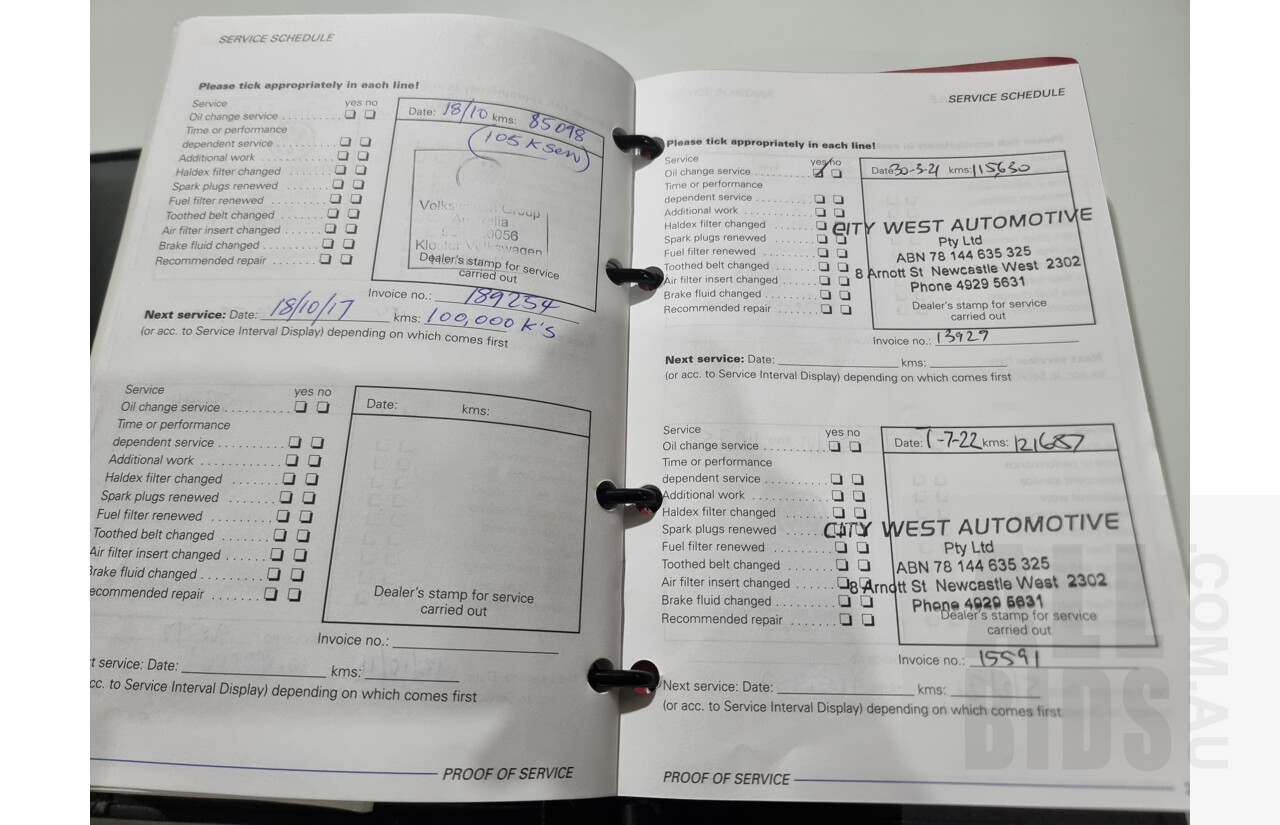 SERVICE SCHEDULE
Please tick appropriately in each line!
Service yes no
Oil change service
Time or performance
dependent service
Additional work
Haldex filter changed
Spark plugs renewed
Fuel filter renewed
Toothed belt changed
Air filter insert changed
Brake fluid changed
Recommended repair
Date: 18/10 kms: 85098
(105 K Serv)
Volks Group
0056
Volkswagen
Dealer's stamp for service
carried out
Invoice no.: 189254
Next service: Date: 18/10/17 kms: 100,000 K's
(or acc. to Service Interval Display) depending on which comes first
Service yes no
Oil change service
Time or performance
dependent service
Additional work
Haldex filter changed
Spark plugs renewed
Fuel filter renewed
Toothed belt changed
Air filter insert changed
Brake fluid changed
ecommended repair
Date: kms:
Dealer's stamp for service
carried out
Invoice no.:
t service: Date: kms:
cc. to Service Interval Display) depending on which comes first
PROOF OF SERVICE
SERVICE SCHEDULE
Please tick appropriately in each line!
Service yes no
Oil change service
Time or performance
dependent service
Additional work
Haldex filter changed
Spark plugs renewed
Fuel filter renewed
Toothed belt changed
Air filter insert changed
Brake fluid changed
Recommended repair
Date 30-3-21 kms: 115630
CITY WEST AUTOMOTIVE
Pty Ltd
ABN 78 144 635 325
8 Arnott St Newcastle West 2302
Phone 4929 5631
Dealer's stamp for service
carried out
Invoice no.: 13927
Next service: Date: kms:
(or acc. to Service Interval Display) depending on which comes first
Service yes no
Oil change service
Time or performance
dependent service
Additional work
Haldex filter changed
Spark plugs renewed
Fuel filter renewed
Toothed belt changed
Air filter insert changed
Brake fluid changed
Recommended repair
Date: 1-7-22 kms: 121687
CITY WEST AUTOMOTIVE
Pty Ltd
ABN 78 144 635 325
8 Arnott St Newcastle West 2302
Phone 4929 5631
Dealer's stamp for service
carried out
Invoice no.: 15591
Next service: Date: kms:
(or acc. to Service Interval Display) depending on which comes first
PROOF OF SERVICE
ALL
BIDS
.COM.AU